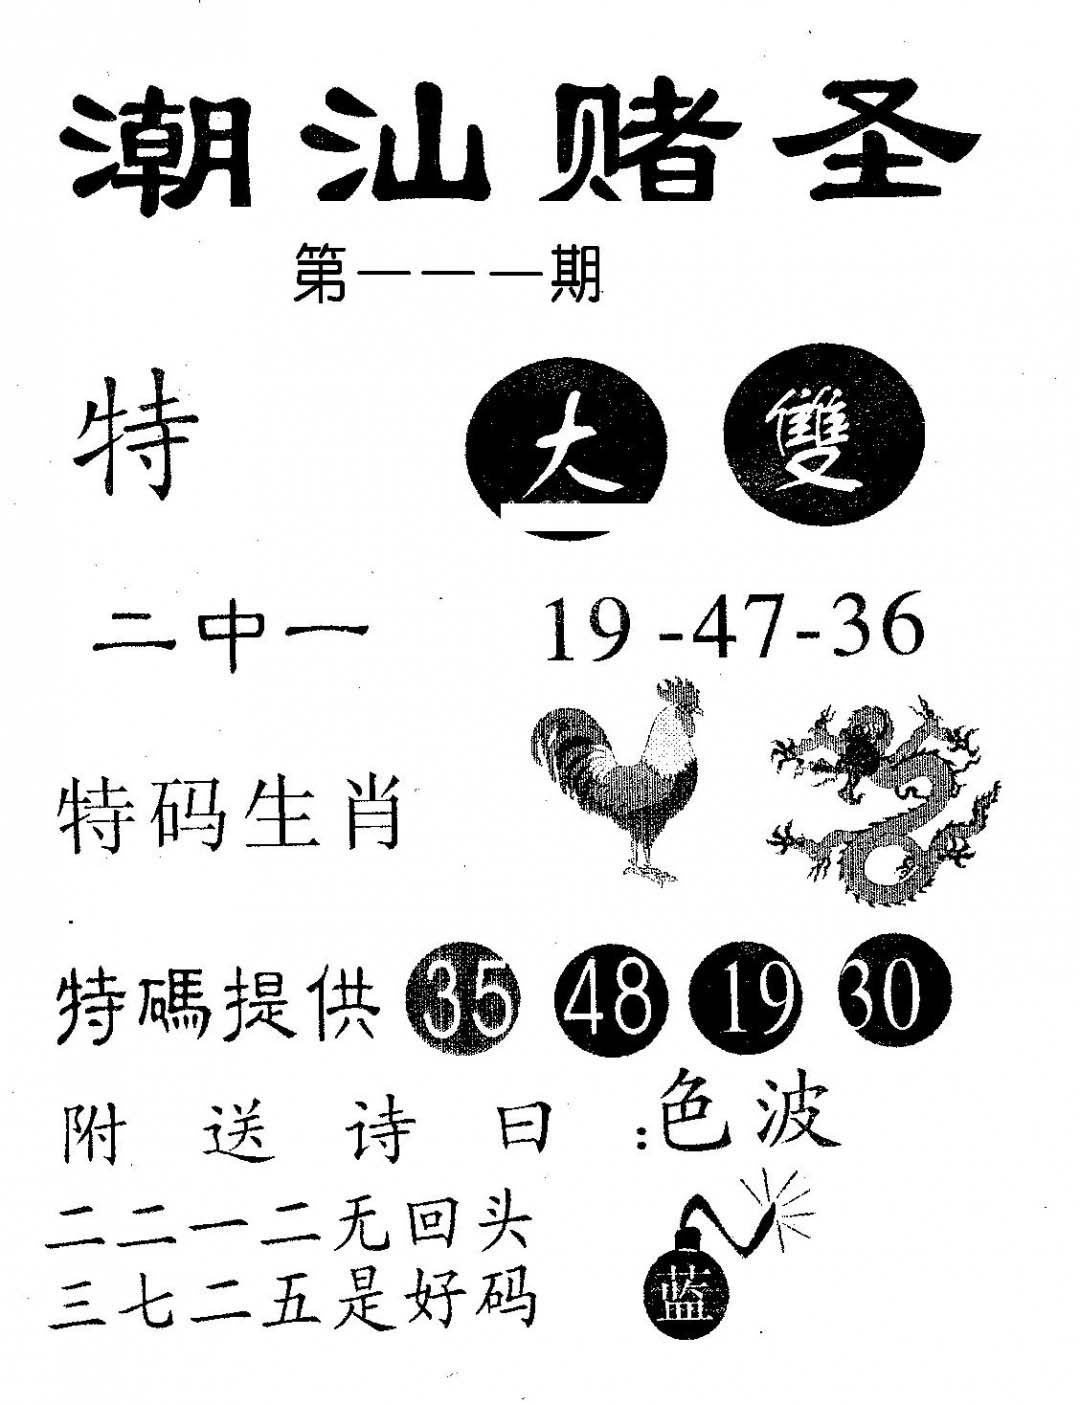 潮汕赌圣
第一一一期
特 大 雙
二中一 19-47-36
特码生肖
特碼提供 35 48 19 30
附送诗曰:
色波
二二一二无回头
三七二五是好码
蓝